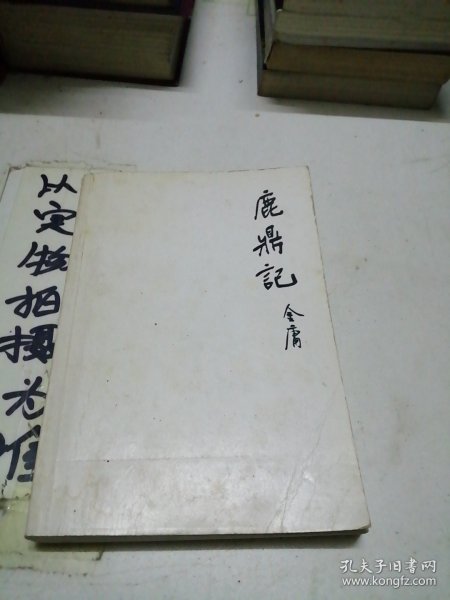 鹿鼎記
金庸
以实物拍摄为准
孔夫子旧书网
www.kongfz.com